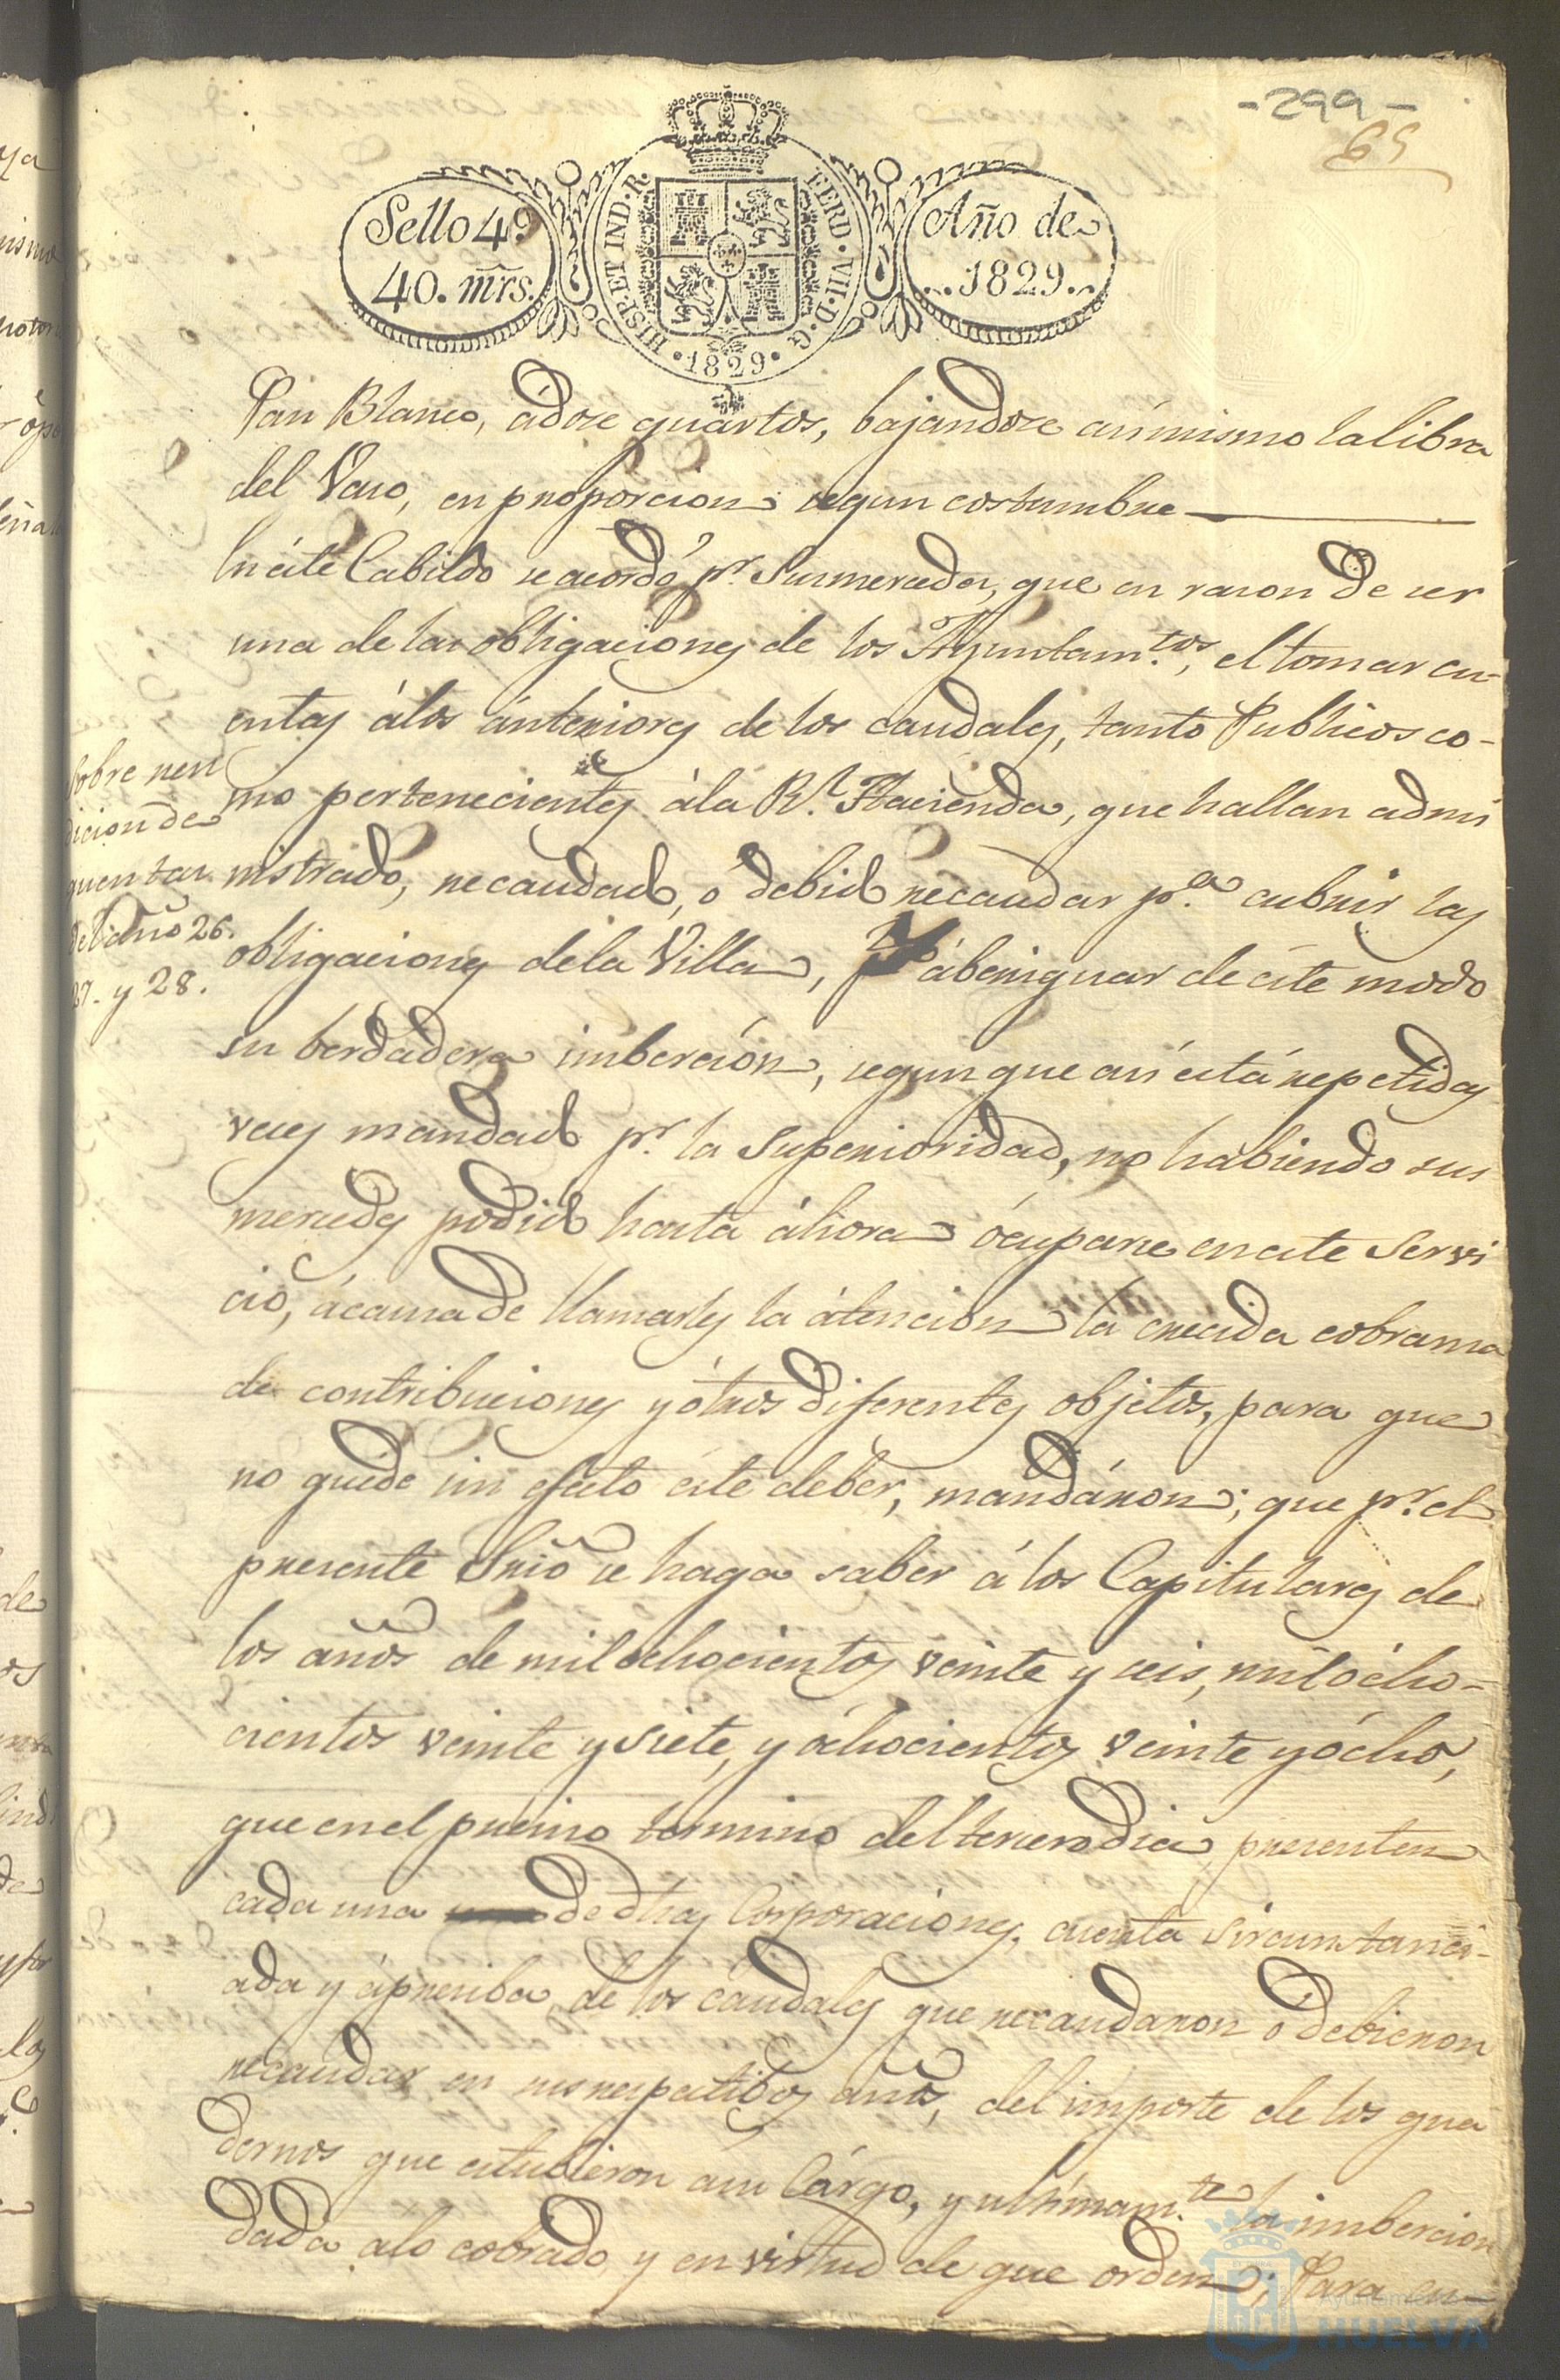 -299-
65
Sello 4º
40. mrs.
HISP. ET IND. R.
FERD. VII. D. G.
1829
Año de
1829
Pan Blanco, ádose quartos, bajandose asímismo la libra
del Vaso, en proporcion; segun costumbre
En éste Cabildo se acordó pr. Susmercedes, que en rason de ser
una de las obligaciones de los Ayuntam.tos, el tomar cu-
entas álos ánteriores de los caudales, tanto Publicos co-
mo pertenecientes ála Rl. Hacienda, que hallan admi
nistrado, recaudado, ó debido recaudar pa. cubrir las
obligaciones dela Villa, y áberiguar de éste modo
su berdadera imberción, segun que así está repetidas
veces mandado pr. la Superioridad, no habiendo sus
mercedes podido hasta áhora ócuparse en este Servi
cio, ácausa de llamarles la átencion la crecida cobransa
de contribuciones y ótros diferentes objetos, para que
no quede sin efecto éste deber, mandáron; que pr. el
presente Srio se haga saber á los Capitulares de
los años de mil ochocientos veinte y seis, mil ócho-
cientos veinte y siete, y óchocientos veinte y ócho,
que en el presiso termino del tercero dia, presenten
cada una de dhas Corporaciones, cuenta sircunstanci-
ada y ápresiba de los caudales que recaudaron ó debieron
recaudar en sus respectibos años, del importe de los qua
dernos que estubieron asu Cárgo, y ultimam.te la imbercion
dada alo cobrado, y en virtud de que orden; Para en-
Sobre ren
dicion de
quentas
del año 26.
27. y 28.
Ayuntamiento de
HUELVA